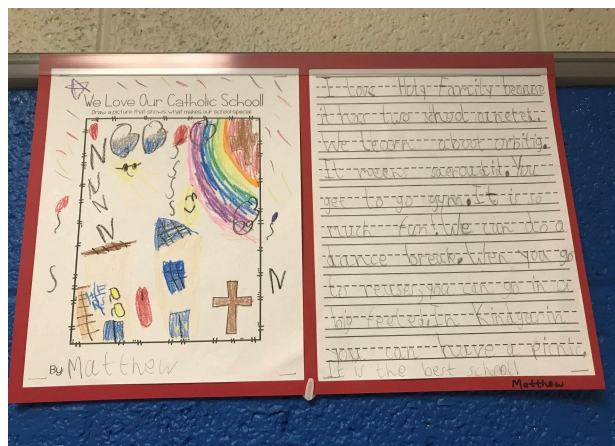 We Love Our Catholic School!
Draw a picture that shows what makes our school special.
By: Matthew
I love Holy Family because
it has two
We learn about
It meens You
get to go gym. It is so
much fun! We can do a
dance break. When you go
to you can go in a
big In
you can have a picnic.
It is the best school!
Matthew